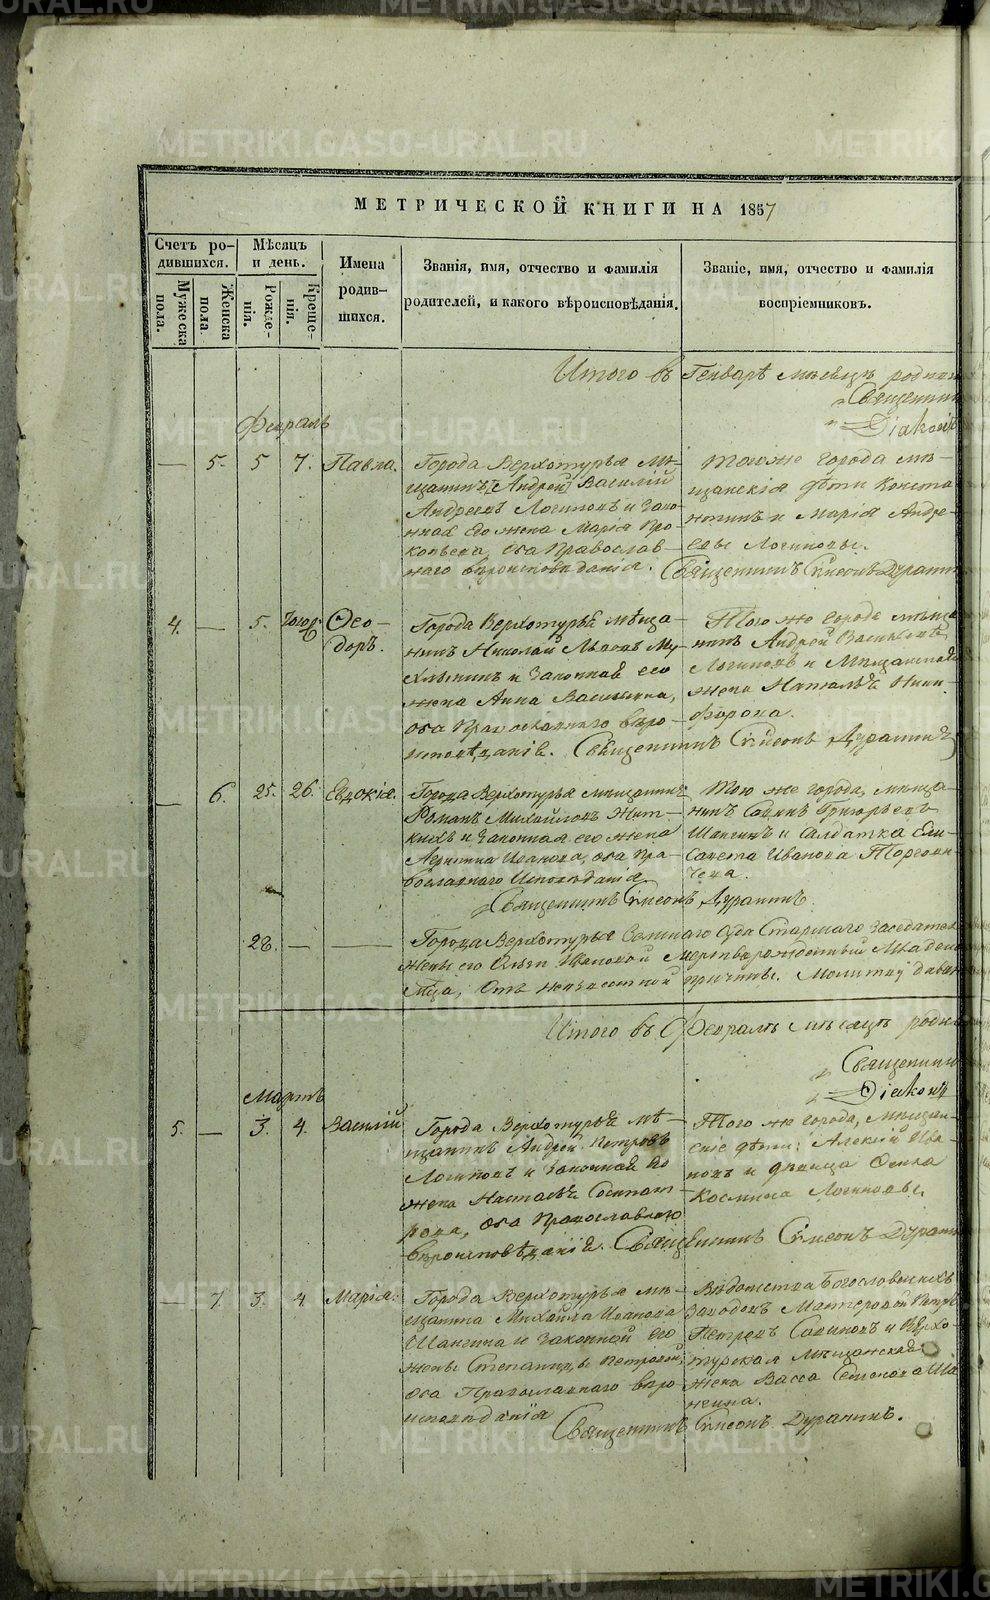 МЕТРИЧЕСКОЙ КНИГИ НА 1857
Счетъ ро-
дившихся.
Мужеска
пола.
Женска
пола.
Мѣсяцъ
и день.
Рожде-
нія.
Креще-
нія.
Имена
родив-
шихся.
Званія, имя, отчество и фамилія
родителей, и какого вѣроисповѣданія.
Званіе, имя, отчество и фамилія
воспріемниковъ.
Итого въ Генварѣ мѣсяцѣ родил
Священни
Діаконъ
Февраль
— 5. 5 7. Павла.
Города Верхотурья мѣ-
щанинъ [Андрей] Василій
Андреевъ Логиновъ и зако-
нная его жена Марія Про-
копьева, оба Православ-
наго вѣроисповѣданія.
Того же города мѣ-
щанскія дѣти Конста-
нтинъ и Марія Андре-
евы Логиновы.
Священникъ Симеонъ
4. — 5. Ѳео-
доръ.
Города Верхотурья мѣща-
нинъ Николай Львовъ Му-
хлынинъ и законная его
жена Анна Васильевна,
оба Православнаго вѣро-
исповѣданія.
Того же города мѣща-
нинъ Андрей Васильевъ
Логиновъ и мѣщанская
жена Наталья Ники-
форова.
Священникъ Симеонъ
— 6. 25. 26. Евдокія.
Города Верхотурья мѣщанинъ
Романъ Михайловъ
и законная его жена
Иванова, оба Пра-
вославнаго Исповѣданія.
Того же города, мѣща-
нинъ Савинъ Григорьевъ
Шангинъ и Солдатка Ели-
савета Иванова
Священникъ Симеонъ
28. — —
Города Верхотурья Суда Старшаго Засѣдателя
жены его Ивановой мертворожденный младен
отъ неизвѣстной причины. Молитву давалъ
Итого въ Февралѣ мѣсяцѣ роди
Священник
Діаконъ
Мартъ
5. — 3. 4. Василій
Города Верхотурья мѣ-
щанинъ Андрей Петровъ
Логиновъ и законная его
жена Наталья Сосипат-
рова, оба Православнаго
вѣроисповѣданія.
Того же города, мѣщан-
скіе дѣти: Алексѣй Ива-
новъ и дѣвица
Космина Логиновы.
Священникъ Симеонъ
— 7. 3. 4 Марія.
Города Верхотурья мѣ-
щанина Михайла Иванова
Шангина и законной его
жены Степаниды Петровой
оба Православнаго вѣро
исповѣданія
Вѣдомства Богословскихъ
Заводовъ Мастеровой Петръ
Петровъ Савиновъ и Верхо-
турская мѣщанская
жена Васса Семенова Ша
нгина.
Священникъ Симеонъ